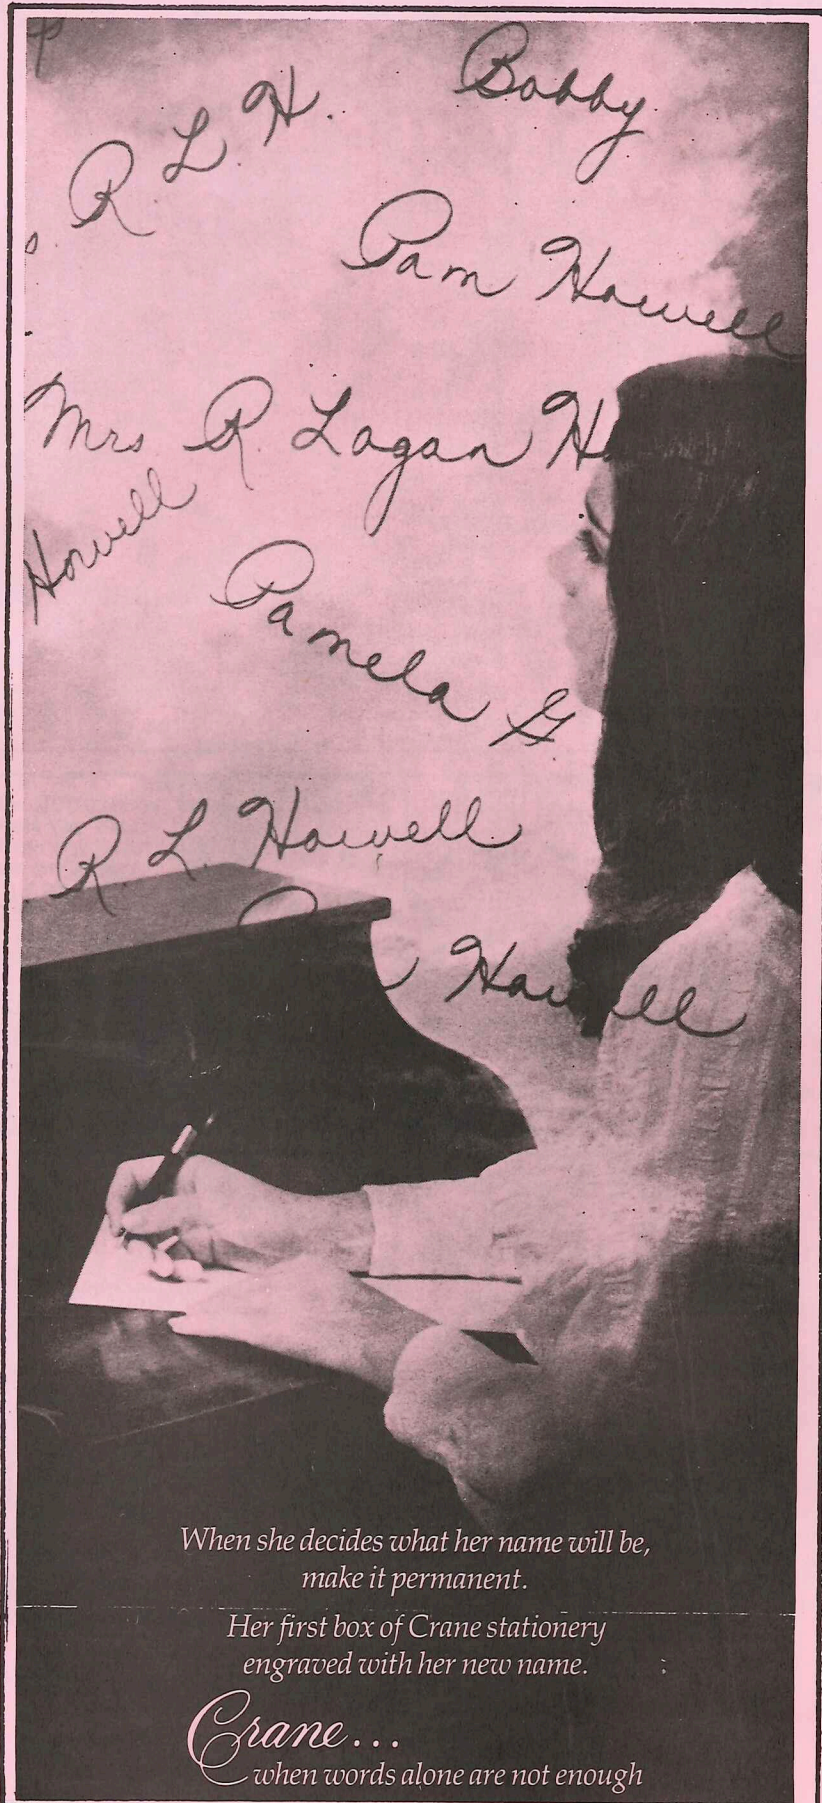 Bobby
R. L. H.
Pam Howell
Mrs R. Logan H
Howell
Pamela G
R. L. Howell
Howell
When she decides what her name will be,
make it permanent.
Her first box of Crane stationery
engraved with her new name.
Crane...
when words alone are not enough